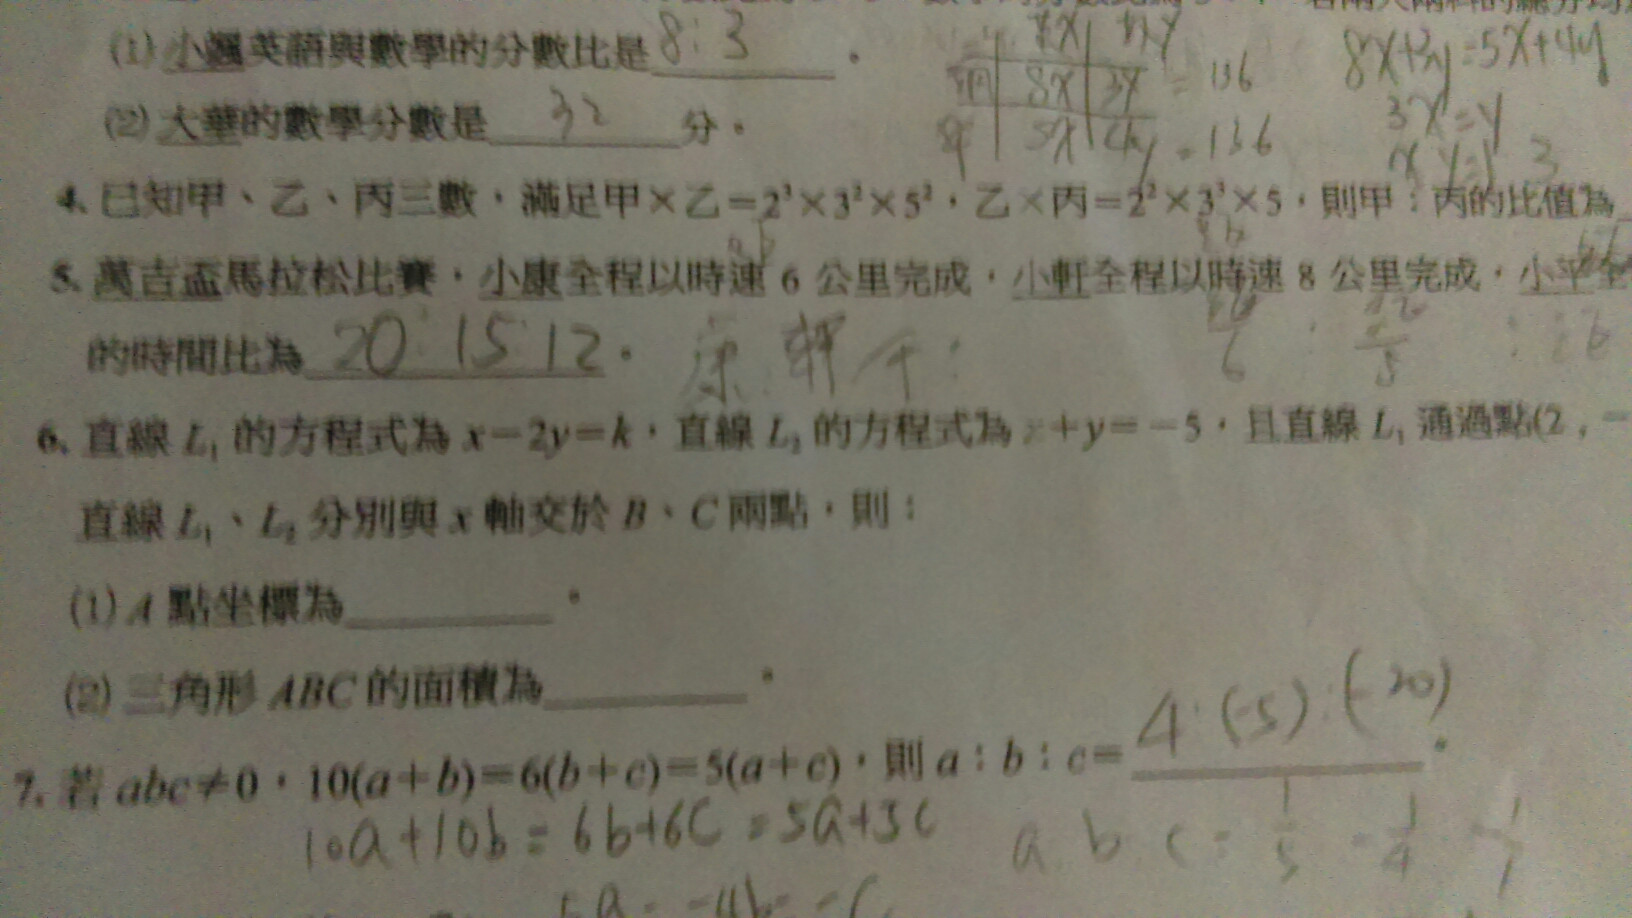 (1) 小颯英語與數學的分數比是 8:3 。
(2) 大華的數學分數是 32 分。
8x 3y = 136
5x 4y = 136
8x+3y=5x+4y
3x=y
4. 已知甲、乙、丙三數,滿足甲×乙=2³×3²×5²,乙×丙=2²×3³×5,則甲:丙的比值為
5. 萬吉盃馬拉松比賽,小康全程以時速 6 公里完成,小軒全程以時速 8 公里完成,小平全
的時間比為 20:15:12 。 康:軒:平:
6. 直線 L₁ 的方程式為 x-2y=k,直線 L₂ 的方程式為 x+y=-5,且直線 L₁ 通過點(2,-
直線 L₁、L₂ 分別與 x 軸交於 B、C 兩點,則:
(1) A 點坐標為 。
(2) 三角形 ABC 的面積為 。
7. 若 abc≠0,10(a+b)=6(b+c)=5(a+c),則 a:b:c= 4:(-5):(-20) 。
10a+10b=6b+6c=5a+5c
5a=-4b=-c